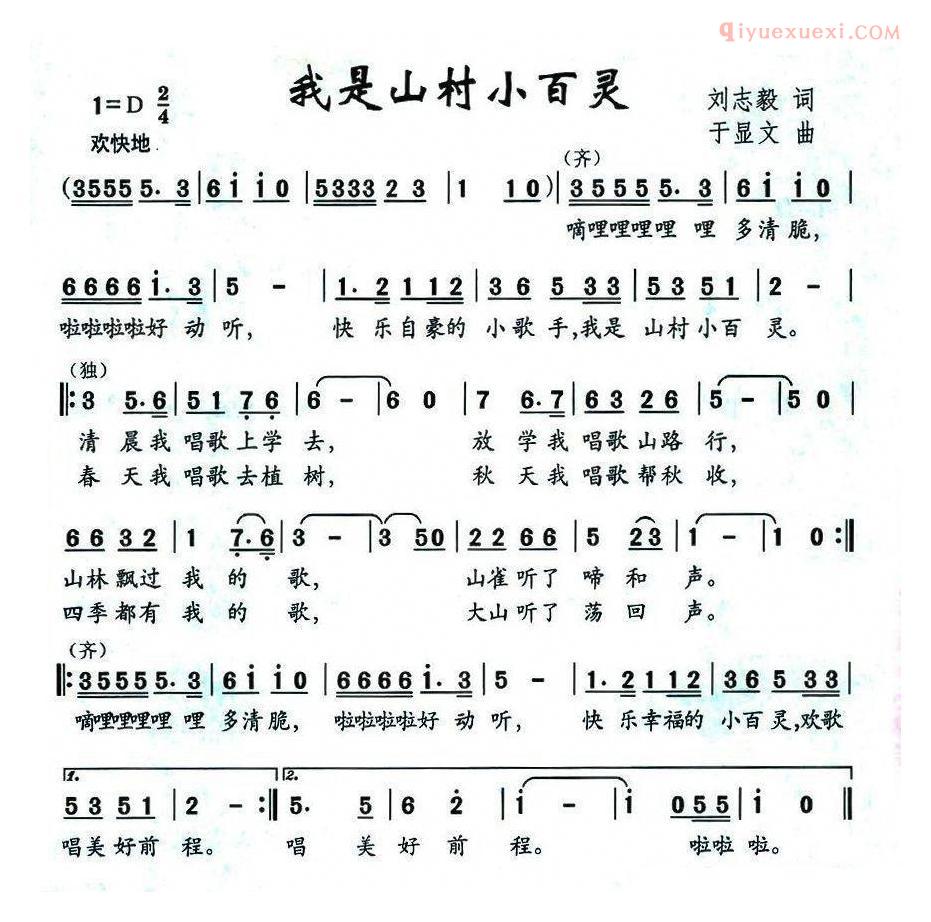 qiyuexuexi.COM
我是山村小百灵
1=D 2/4
刘志毅 词
欢快地
于显文 曲
(齐)
(3555 5. 3 | 6 i i 0 | 5333 2 3 | 1 1 0) | 3555 5. 3 | 6 i i 0 |
嘀哩哩哩哩 哩 多清脆,
6666 i. 3 | 5 - | 1. 2 1 12 | 3 6 5 33 | 5 3 5 1 | 2 - |
啦啦啦啦好 动 听, 快 乐自豪的 小歌 手,我是 山村小百 灵。
(独)
‖: 3 5. 6 | 5 1 7 6 | 6 - | 6 0 | 7 6. 7 | 6 3 2 6 | 5 - | 5 0 |
清 晨我 唱歌上学 去, 放 学我 唱歌山路 行,
春 天我 唱歌去植 树, 秋 天我 唱歌帮秋 收,
6 6 3 2 | 1 7. 6 | 3 - | 3 50 | 2 2 6 6 | 5 2 3 | 1 - | 1 0 :‖
山林飘过 我 的 歌, 山雀听了 啼 和 声。
四季都有 我 的 歌, 大山听了 荡 回 声。
(齐)
‖: 3555 5. 3 | 6 i i 0 | 6666 i. 3 | 5 - | 1. 2 1 12 | 3 6 5 33 |
嘀哩哩哩哩 哩 多清脆, 啦啦啦啦好 动 听, 快 乐幸福的 小百 灵,欢歌
1. 2.
5 3 5 1 | 2 - :‖ 5. 5 | 6 2 | i - | i 055 | i 0 ‖
唱美好前 程。 唱 美 好 前 程。 啦啦 啦。